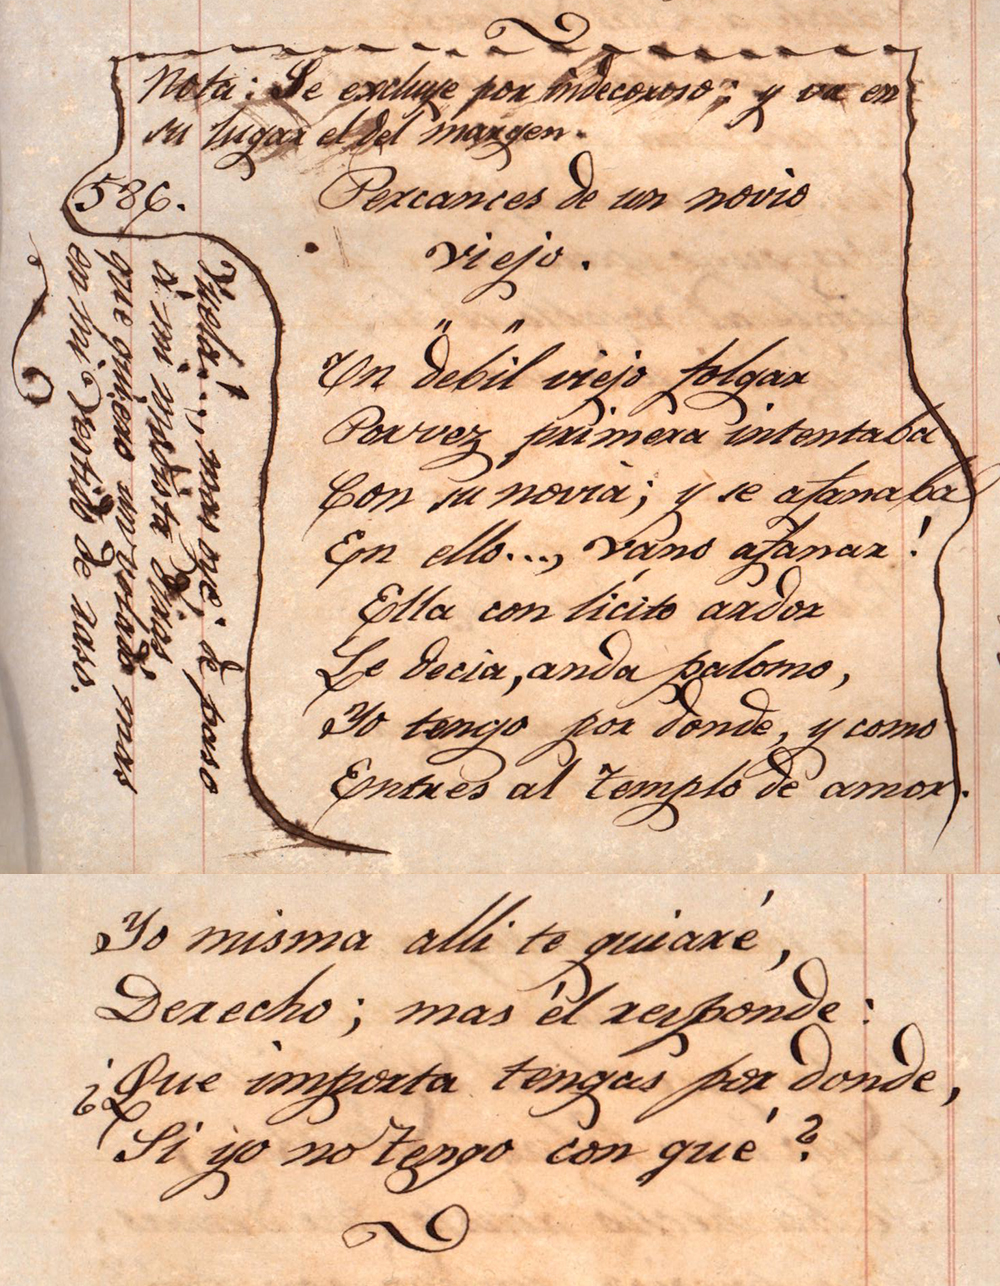 Nota: Se excluye por indecoroso; y va en
su lugar el del margen.
586.
Percances de un novio
viejo.
Un debil viejo folgar
Por vez primera intentaba
Con su novia; y se afanaba
En ello..., vano afanar!
Ella con licito ardor
Le decia, anda palomo,
Yo tengo por donde, y como
Entres al templo de amor.
de paso
à mi
que quiero un
en mi vestido de raso.
Yo misma alli te guiaré,
Derecho; mas él responde:
¿Que importa tengas por donde,
Si yo no tengo con qué?